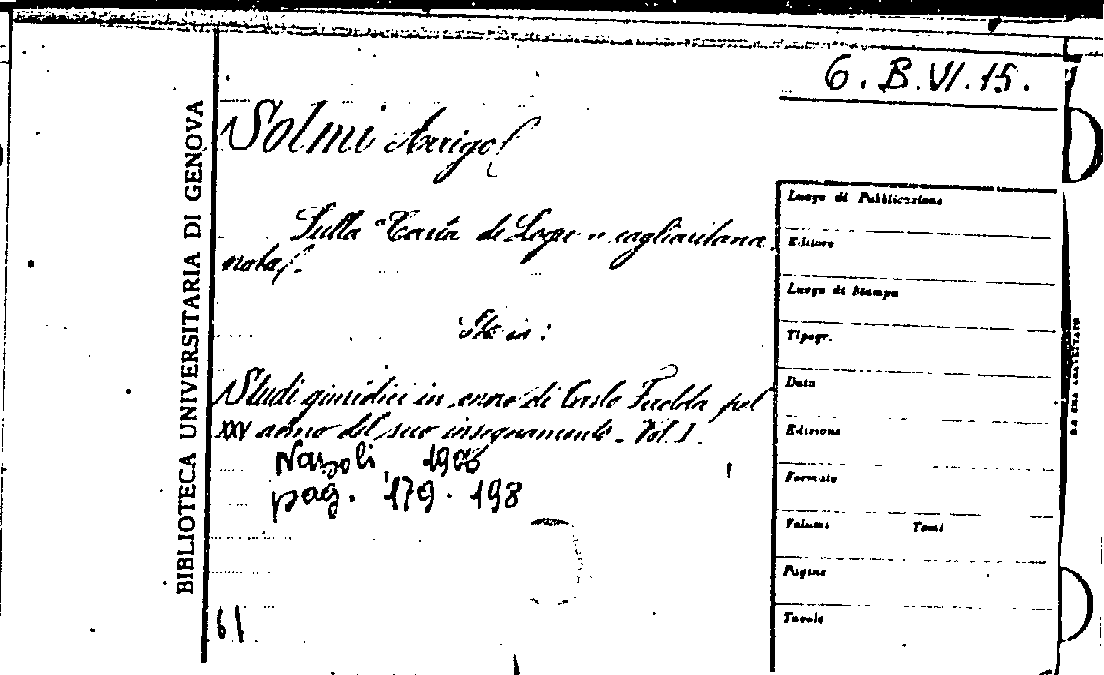 6. B. VI. 15.
BIBLIOTECA UNIVERSITARIA DI GENOVA
Solmi Arrigo
Sulla "Carta de Logu" cagliaritana.
nota.
Sta in:
Studi giuridici in onore di Carlo Fadda pel
XXV anno del suo insegnamento. Vol. 1.
Napoli, 1906
pag. 179. 198
61
Luogo di Pubblicazione
Editore
Luogo di Stampa
Tipogr.
Data
Edizione
Formato
Volumi Tomi
Pagine
Tavole